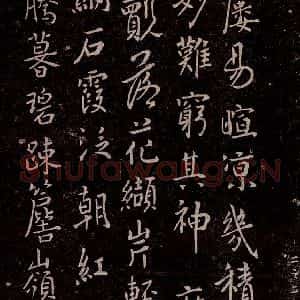 屢易暄涼幾積
妙難窮其神
落花纈岸輕
石霞泛朝紅
騰暮碧疎簷嶺
Shufawang.CN